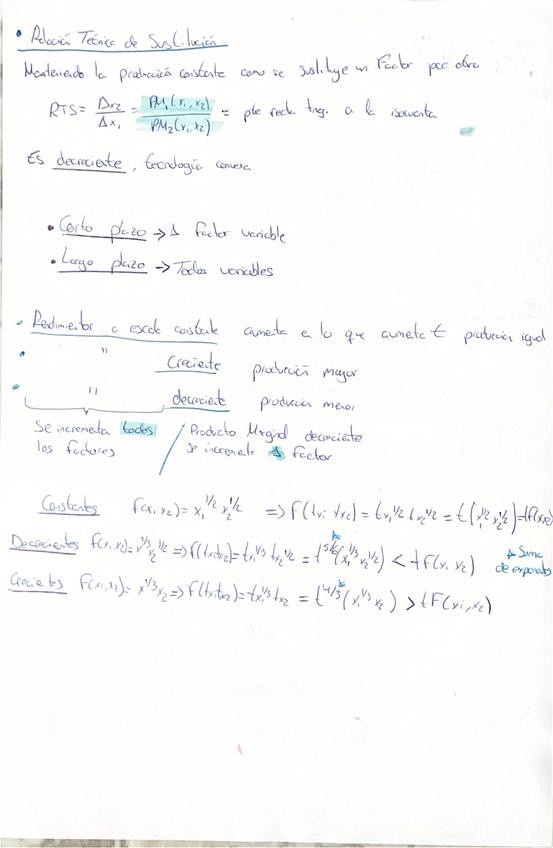 • Relación Técnica de Sustitución
Manteniendo la producción constante como se sustituye un Factor por otro
RTS = Δx2/Δx1 = PM1(x1, x2)/PM2(x1, x2) = pte recta tng. a la isocuanta
Es decreciente, tecnología convexa
• Corto plazo → 1 Factor variable
• Largo plazo → Todos variables
• Redimientos a escala constante aumenta en lo que aumenta t producción igual
• " Creciente producción mayor
• " decreciente producción menor
Se incrementa todos los factores / Producto Marginal decreciente se incrementa 1 factor
Constantes f(x1 x2) = x1^1/2 x2^1/2 => f(tx1 tx2) = tx1^1/2 tx2^1/2 = t(x1^1/2 x2^1/2) = tf(x1x2)
Decrecientes f(x1 x2) = x1^1/3 x2^1/2 => f(tx1tx2) = tx1^1/3 tx2^1/2 = t^5/6 (x1^1/3 x2^1/2) < tF(x1 x2) * Suma de exponentes
Crecientes F(x1, x2) = x^1/3 x2 => f(tx1tx2) = tx1^1/3 tx2 = t^4/3 (x1^1/3 x2) > tF(x1, x2)